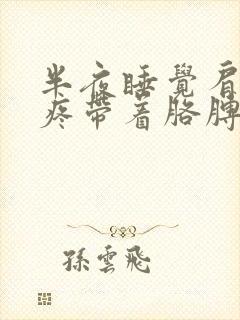 半夜睡覺肩
疼帶着胳膊
孫雲飛